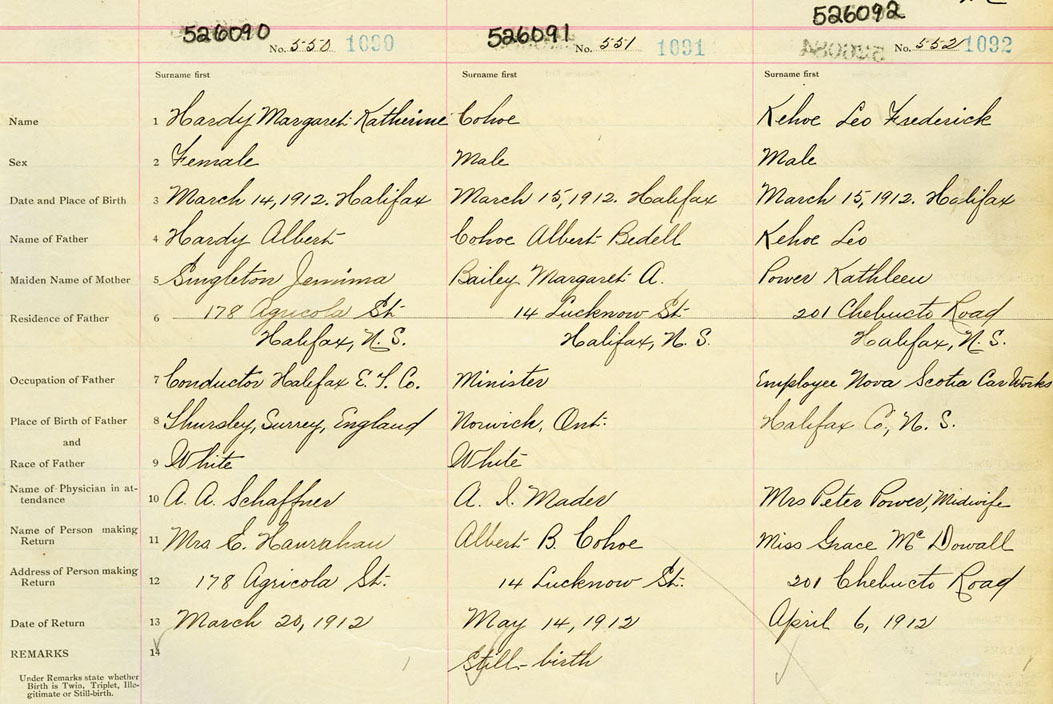 526090 No. 550 1090 526091 No. 551 1091 526092 No. 552 1092
Surname first Surname first Surname first
Name 1 Hardy Margaret Katherine Cohoe Kehoe Leo Frederick
Sex 2 Female Male Male
Date and Place of Birth 3 March 14, 1912. Halifax March 15, 1912. Halifax March 15, 1912. Halifax
Name of Father 4 Hardy Albert Cohoe Albert Bedell Kehoe Leo
Maiden Name of Mother 5 Singleton Jemima Bailey Margaret A. Power Kathleen
Residence of Father 6 178 Agricola St. 14 Lucknow St. 201 Chebucto Road
Halifax, N. S. Halifax, N. S. Halifax, N. S.
Occupation of Father 7 Conductor Halifax E. T. Co. Minister Employee Nova Scotia Car Works
Place of Birth of Father 8 Thursley, Surrey, England Norwich, Ont. Halifax Co, N. S.
and
Race of Father 9 White White
Name of Physician in at-
tendance 10 A. A. Schaffner A. I. Mader Mrs Peter Power, Midwife
Name of Person making
Return 11 Mrs E. Hanrahan Albert B. Cohoe Miss Grace McDowall
Address of Person making
Return 12 178 Agricola St. 14 Lucknow St. 201 Chebucto Road
Date of Return 13 March 20, 1912 May 14, 1912 April 6, 1912
REMARKS 14 Still-birth
Under Remarks state whether
Birth is Twin, Triplet, Ille-
gitimate or Still-birth.